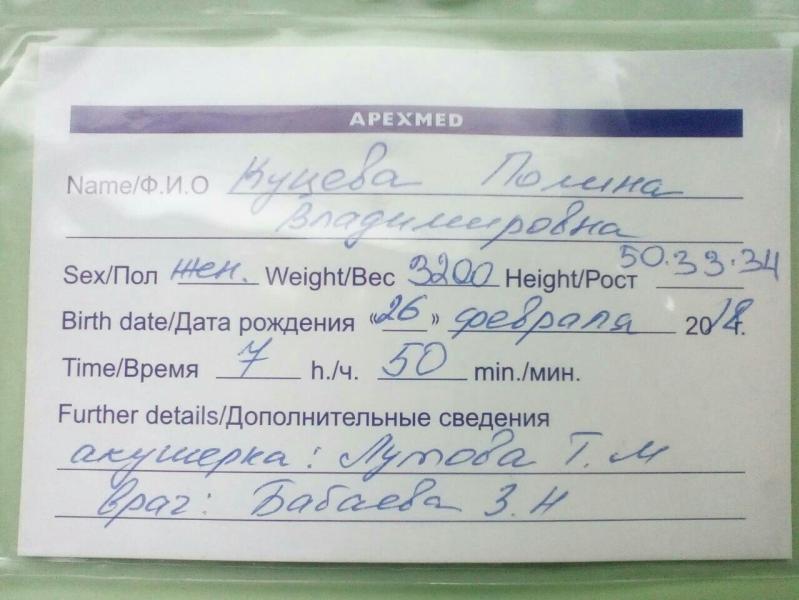 APEXMED
Name/Ф.И.О Куцева Полина
Владимировна
Sex/Пол жен. Weight/Вес 3200 Height/Рост 50.33.34
Birth date/Дата рождения «26» февраля 2018г.
Time/Время 7 h./ч. 50 min./мин.
Further details/Дополнительные сведения
акушерка: Лутова Т.М
врач: Бабаева З.Н